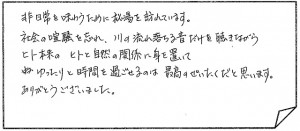 非日常を味わうために牧場を訪れています。
社会の喧騒を忘れ、川の流れ落ちる音だけを聴きながら
ヒト本来の ヒトと自然の関係に身を置いて
ゆったりと時間を過ごせるのは 最高のぜいたくだと思います。
ありがとうございました。